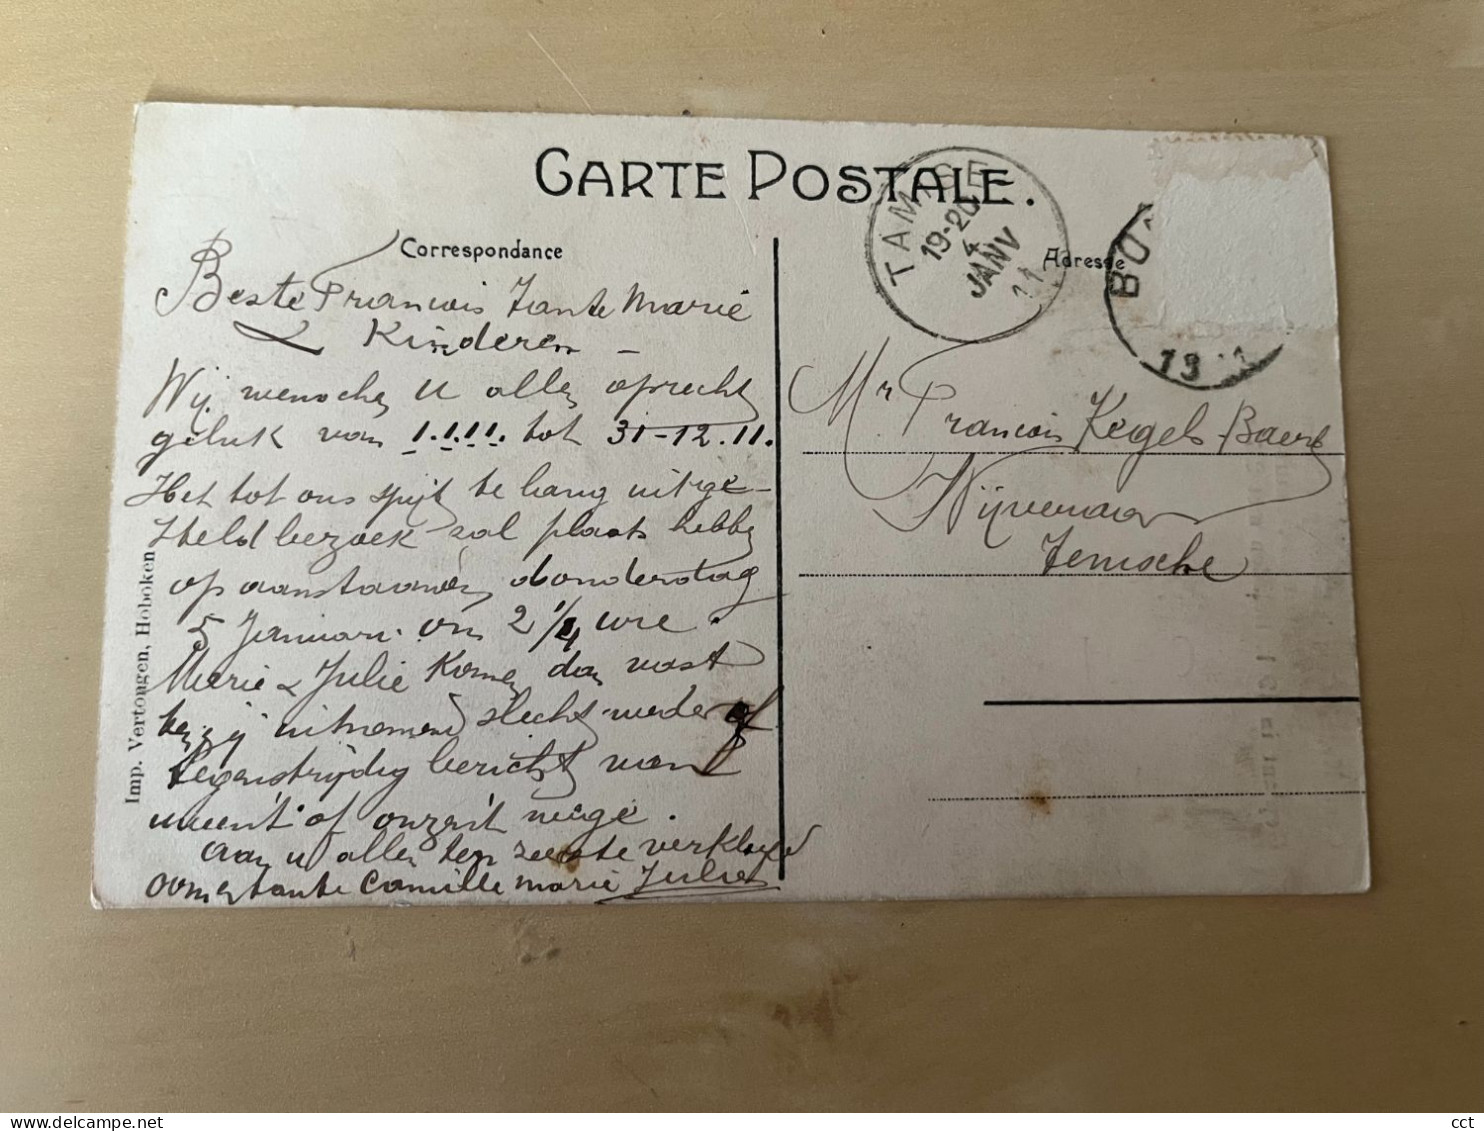 CARTE POSTALE.
Correspondance
Adresse
TAMISE
19-20
4
JANV
11
BU
13
Beste Francois Tante Marie
& Kinderen –
Wij wenschen u allen oprecht
geluk van 1.1.11. tot 31-12.11.
Het tot ons spijt te lang uitge-
steld bezoek zal plaats hebben
op aanstaanden donderstag
5 Januari om 2 1/4 ure.
Marie & Julie komen dan vast
tenzij uitnemend slecht weder of
tegenstrijdig bericht van
uwent of onzent wege.
aan u allen ten zeerste verkleefd
oom & tante Camille Marie Julie
Mr Francois Kegels-Baert
Nijverlaan
Temsche
Imp. Vertongen, Hoboken
delcampe.net
cct